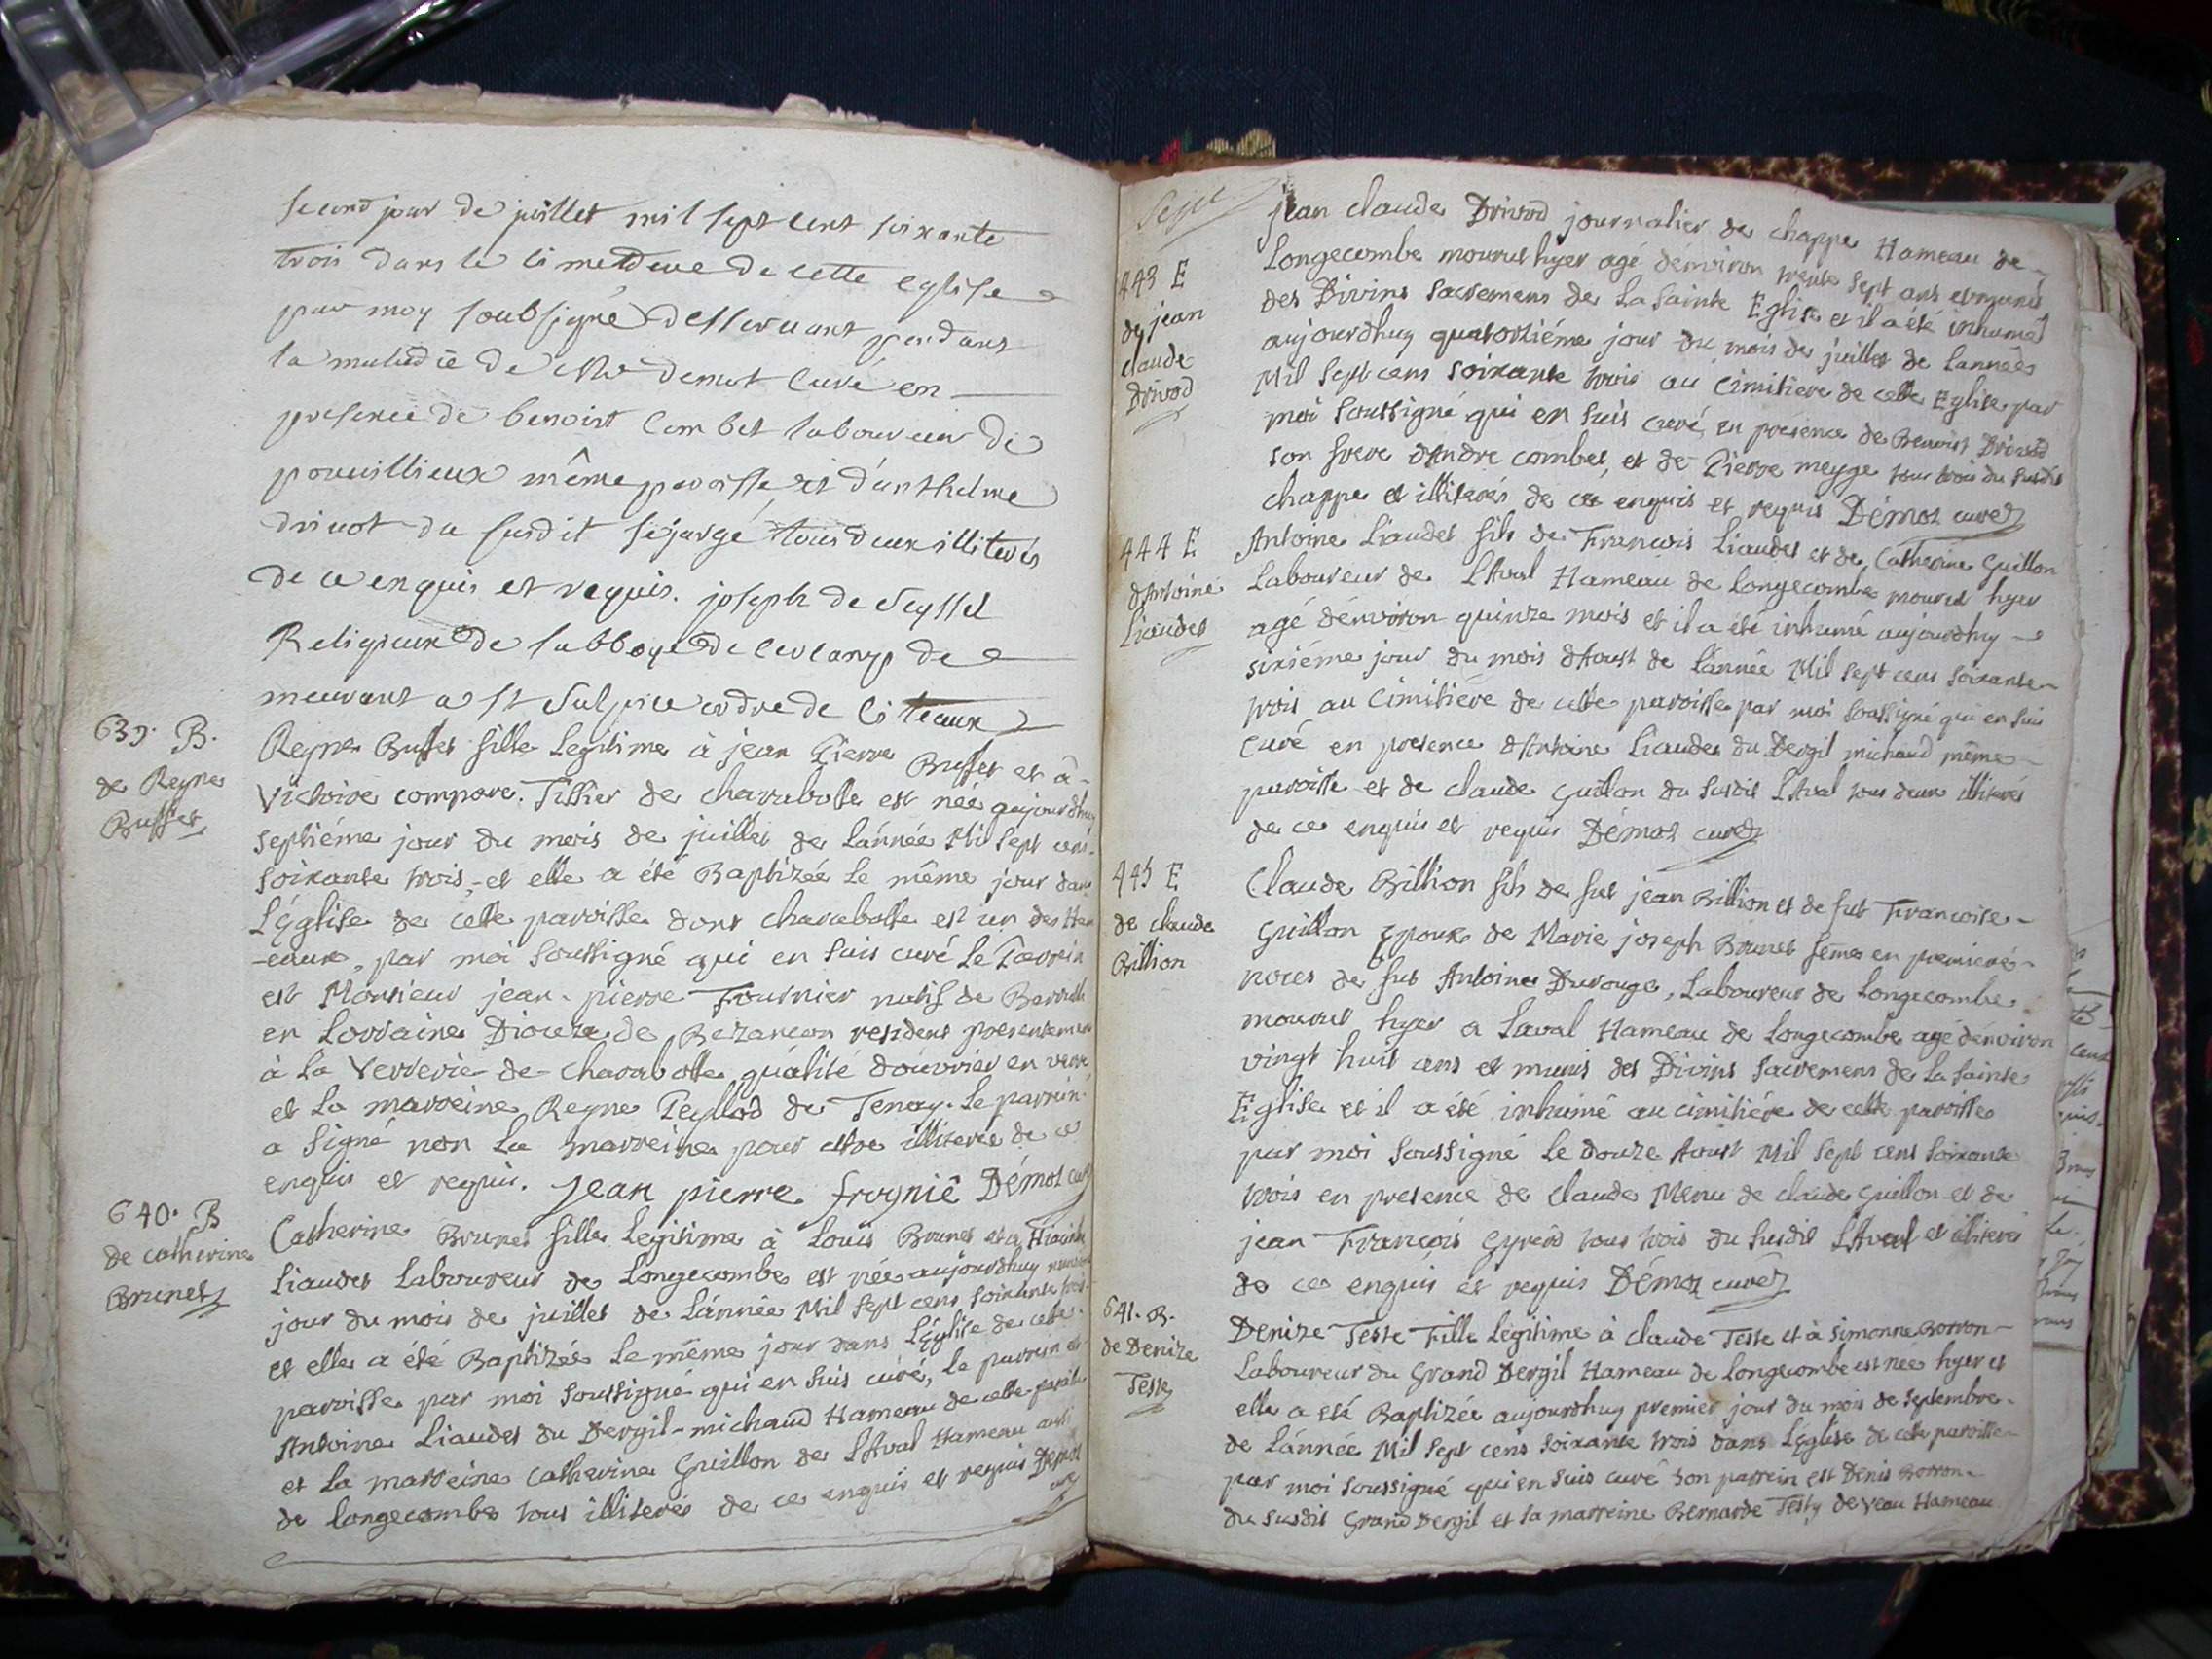 second jour de juillet mil sept cent soixante
trois dans le cimetdere de cette eglise
par moy soubsigné desservant pendant
la maladie de Mre demot curé en
presence de benoist Combet laboureur de
poveillieux même paroisse et d'anthelme
drivot du susdit tous deux illiterés
de ce enquis et requis. joseph de Seyssel
Religieux de labboye de de
meurant a st Sulpice ordre de Citeaux
639. B.
de Reyne
Buffet
Reyne Buffet fille Legitime à jean Pierre Buffet et à
Victoire compare. Tissier de Charabotte est née aujourdhuy
septiéme jour du mois de juillet de L'année Mil sept cens
soixante trois, et elle a été Baptizée Le même jour dans
L'Eglise de cette paroisse dont charabotte est un des Ham
-eaux, par moi soussigné qui en suis curé Le Parrein
est Monsieur jean-pierre Fournier natif de
en Lorraine Dioceze de Bezançon residens presentement
à La Verrerie de Charabotte qualité d'ouvrier en verre
et La marreine Reyne Peyllod de Tenay. Le parrein
a signé non La marreine pour estre illiterée de ce
enquis et requis. jean pierre frognié Démot curé
640. B
de catherine
Brunet
Catherine Brunet fille Legitime à Louis Brunet et a Hiacinthe
Liaudet Laboureur de Longecombe est née aujourdhuy
jour du mois de juillet de L'année Mil sept cens soixante trois
et elle a été Baptizée Le même jour dans L'Eglise de cette
paroisse par moi soussigné qui en suis curé, Le parrein est
Antoine Liaudet du Dergil-michaud Hameau de cette paroisse
et La marreine Catherine Guillon de LAval Hameau aussi
de longecombe tous illiterés de ce enquis et requis Démot
curé
Sept
443 E
de jean
claude
Drivod
jean claude Drivod journalier de chappe Hameau de
Longecombe mourut hyer agé d'environ trente sept ans et muni
des Divins Sacremens de La Sainte Eglise et il a été inhumé
aujourdhuy quatorziéme jour du mois de juillet de L'année
Mil Sept cens soixante trois au Cimitiere de cette Eglise par
moi soussigné qui en suis curé, en présence de Benoist Drivod
son frere dAndre combet, et de Pierre meyge tous trois du susdit
chappe et illiterés de ce enquis et requis Démot curé
444 E
dAntoine
Liaudet
Antoine Liaudet fils de Francois Liaudet et de Catherine Guillon
Laboureur de LAval Hameau de Longecombe mourut hyer
agé d'environ quinze mois et il a été inhumé aujourdhuy
sixiéme jour du mois dAoust de L'année Mil sept cens soixante
trois au Cimitiére de cette paroisse par moi soussigné qui en suis
Curé en presence dAntoine Liaudet du Dergil michaud même
paroisse et de claude Guillon du susdit LAval tous deux illiterés
de ce enquis et requis Démot curé
445 E
de claude
Billion
Claude Billion fils de fut jean Billion et de fut Francoise
Guillon Epoux de Marie joseph Brunet feme en premieres
noces de fut Antoine Durouge, Laboureur de Longecombe
mourut hyer a Laval Hameau de Longecombe agé d'environ
vingt huit ans et munis des Divins Sacremens de La Sainte
Eglise et il a été inhumé au cimitiére de cette paroisse
par moi soussigné Le douze Aoust Mil sept cens soixante
trois en presence de claude Menu de claude Guillon et de
jean François Gyrerd tous trois du susdit LAval et illiterés
de ce enquis et requis Démot curé
641. B.
de Denize
Teste
Denize Teste Fille Légitime à claude Teste et à simonne Borron
Laboureur du Grand Dergil Hameau de Longecombe est née hyer et
elle a eté Baptizée aujourdhuy premier jour du mois de septembre
de L'année Mil sept cens soixante trois dans L'Eglise de cette paroisse
par moi soussigné qui en suis curé son parrein est Denis Borron
du susdit Grand Dergil et sa marreine Bernarde Testy de veau Hameau